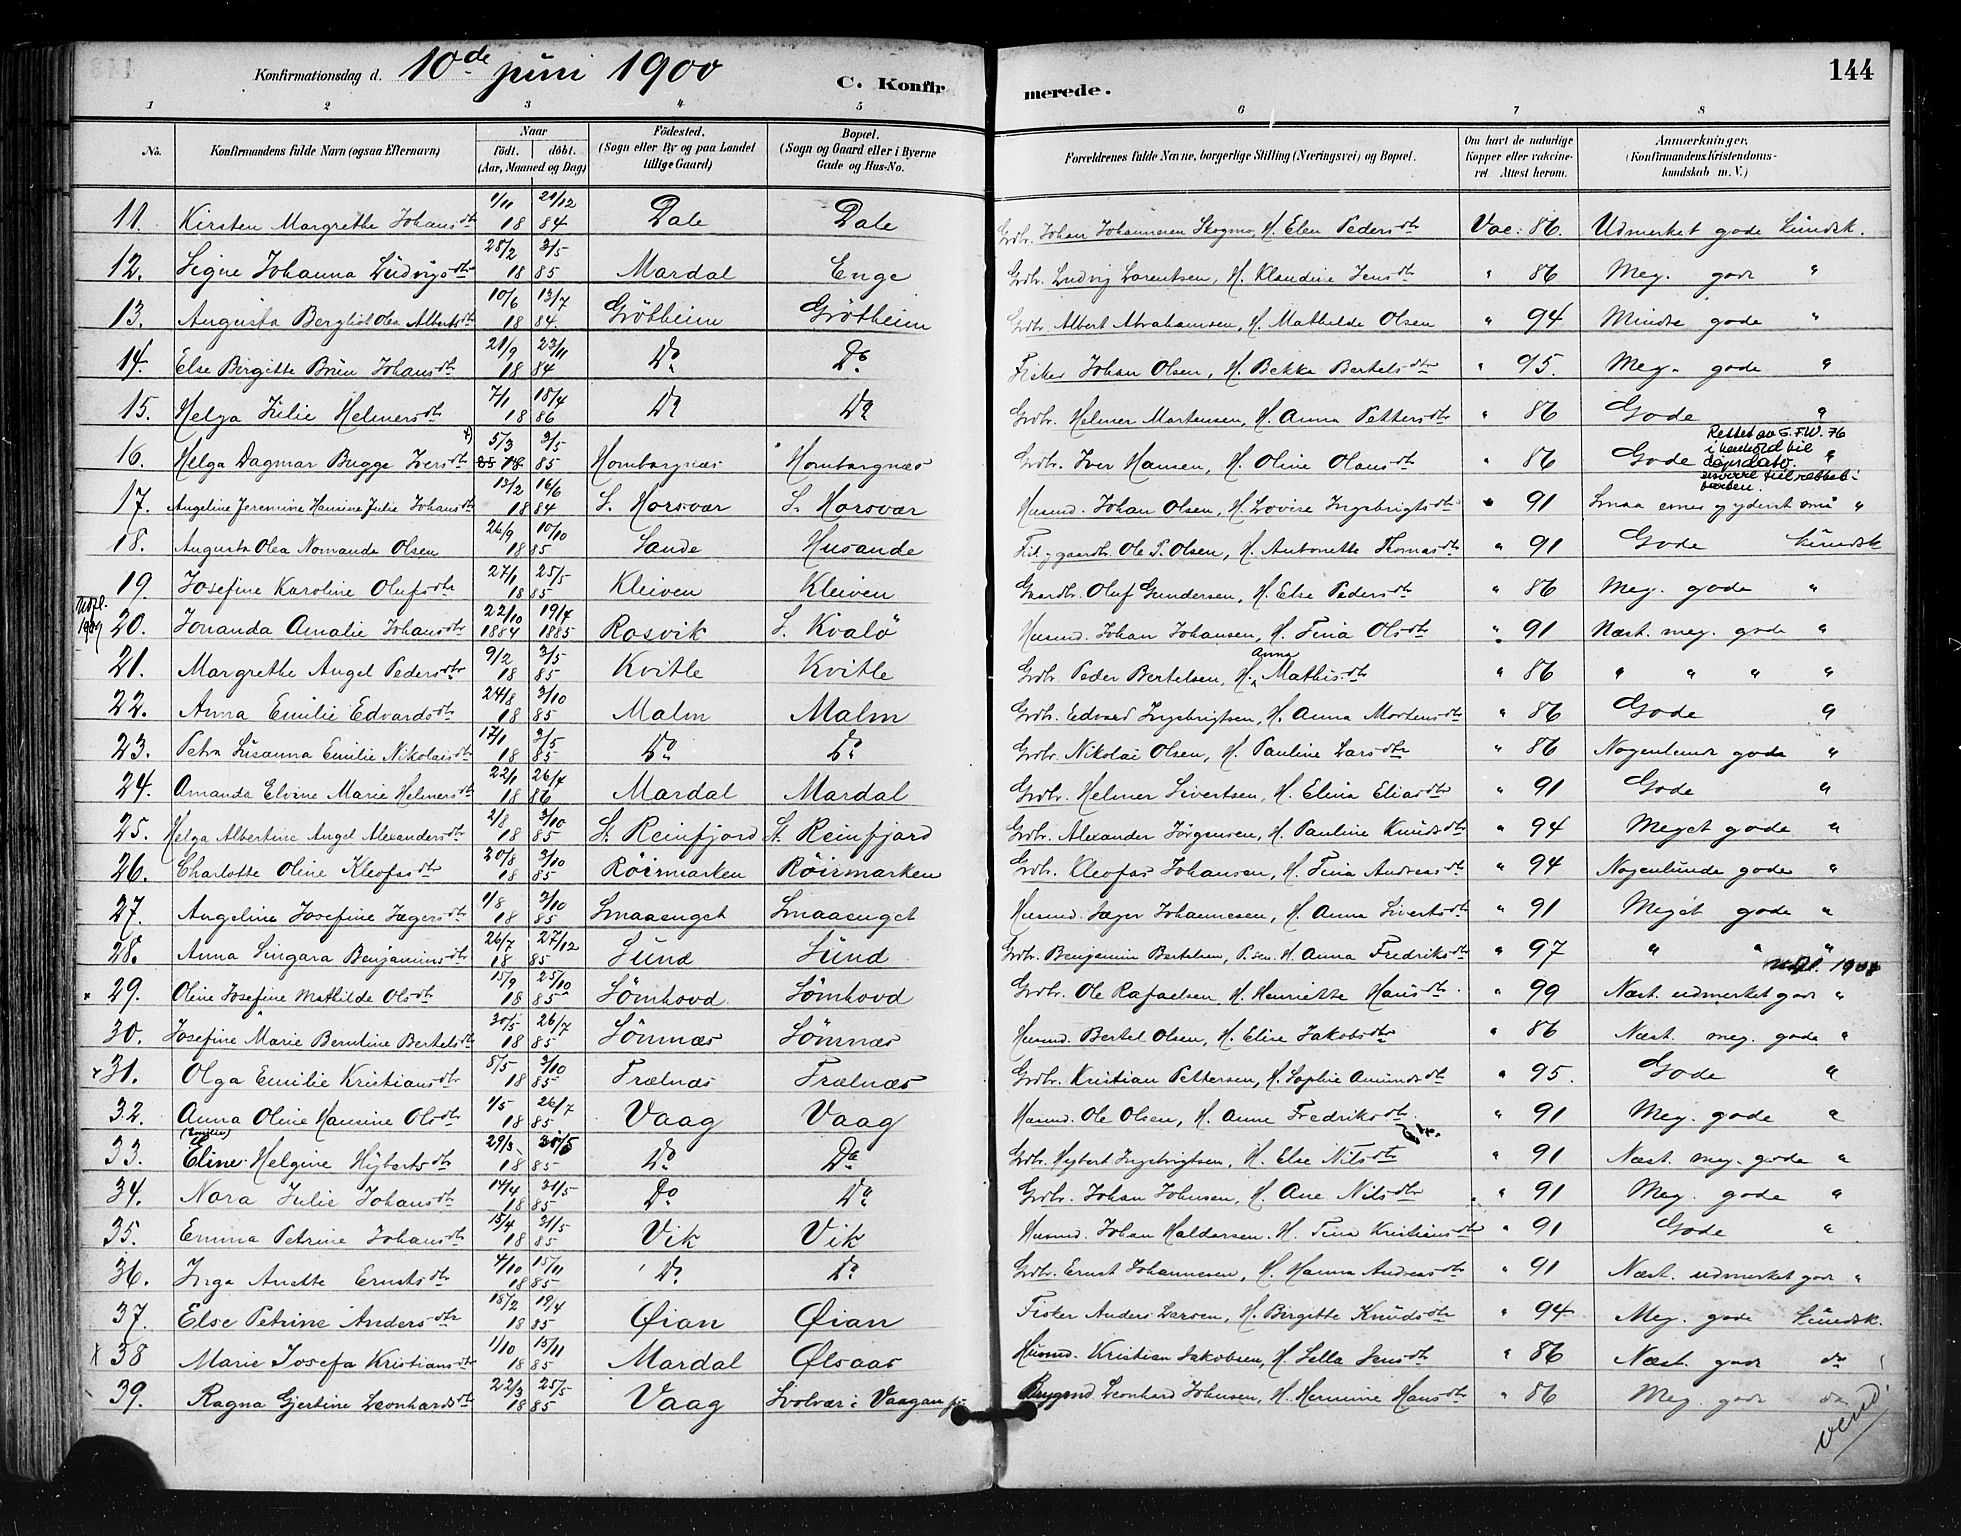 144
Konfirmationsdag d. 10de juni 1900 C. Konfirmerede.
1 2 3 4 5 6 7 8
No. Konfirmandens fulde Navn (ogsaa Efternavn) Naar födt. döbt. (Aar, Maaned og Dag) Födested. (Sogn eller By og paa Landet tillige Gaard) Bopæl. (Sogn og Gaard eller i Byerne Gade og Hus-No. Forældrenes fulde Navne, borgerlige Stilling (Næringsvei) og Bopæl. Om havt de naturlige Kopper eller vaccineret Attest herom. Anmærkninger. (Konfirmandens Kristendomskundskab m. V.)
11. Kirsten Margrethe Johansdtr 1/11 1884 Dale Dale Grdbr. Johan Johannesen Skogmo, H. Elen Pedersdtr Vac: 86. Udmerket gode Kundsk.
12. Signe Johanna Ludvigsdtr 28/2 3/5 1885 Mardal Enge Grdbr. Ludvig Larentsen, H. Klaudine Jensdtr " 86 Meg. gode "
13. Augusta Bergliot Olea Albertsdtr 10/6 13/7 1884. Grötheim Grötheim Grdbr. Albert Abrahamsen, H. Mathilde Olsen " 94 Mindre gode "
14. Else Birgitte Brun Johansdtr 21/9 23/11 1884 Do Do Fisker Johan Olsen, H. Bekka Bertelsdtr " 95. Meg. gode "
15. Helga Julie Helmersdtr 7/1 18/4 1886 Do Do Grdbr. Helmer Martensen, H. Anna Pettersdtr " 86 Gode "
16. Helga Dagmar Bugge Iversdtr x) 5/3 3/5 85 18 85 Hombørgnæs Hombørgnæs Grdbr. Iver Hansen, H. Oline Olausdtr " 86 Gode "
Rettet av S.FW. 76 i henhold til dåpsdato.
17. Angeline Jeremine Hansine Julie Johansdtr 13/2 16/6 1884 S. Horsvær S. Horsvær Husmd. Johan Olsen, H. Lovise Ingebrigtsdtr " 91 Smaa evner "
18. Augusta Olea Nomanda Olsen 26/9 10/10 1885 Sande Husande Ole P. Olsen, H. Antonette Thomasdtr " 91 Gode Kundsk
19. Josefine Karoline Olufsdtr 27/1 25/5 1885 Kleiven Kleiven Gaardbr. Oluf Gundersen, H. Else Pedersdtr " 86 Meg. gode "
20. Jonanda Amalie Johansdtr 22/10 1884 19/4 1885 Rosvik S. Kvalö Husmd. Johan Johansen, H. Tina Olsdtr " 91 Næst. meg. gode "
21. Margrethe Angel Pedersdtr 9/2 3/5 1885 Kvitle Kvitle Grdbr. Peder Bertelsen, H. Anna Mathisdtr " 86 " " " "
22. Anna Emilie Edvardsdtr 24/8 3/10 1885 Malm Malm Grdbr. Edvard Ingebrigtsen, H. Anna Mortensdtr " 86 Gode "
23. Petra Susanna Emilie Nikolaisdtr 17/1 3/5 1885 Do Do Grdbr. Nikolai Olsen, H. Pauline Larsdtr " 86 Nogenlunde gode "
24. Amanda Elvine Marie Helmersdtr 22/1 26/4 1886 Mardal Mardal Grdbr. Helmer Sivertsen, H. Elina Eliasdtr " 91 Gode "
25. Helga Albertine Angel Alexandersdtr 2/8 3/10 1885 St. Reinfjord St. Reinfjord Grdbr. Alexander Jørgensen, H. Pauline Knudsdtr " 94 Meget gode "
26. Charlotte Oline Kleofasdtr 20/8 3/10 1885 Röirmarken Röirmarken Grdbr. Kleofas Johansen, H. Tina Andreasdtr " 94 Nogenlunde gode "
27. Angeline Josefine Jægersdtr 1/8 3/10 1885 Smaaenget Smaaenget Husmd. Jæger Johannesen, H. Anna Sivertsdtr " 91 Meget gode "
28. Anna Singara Benjaminsdtr 26/7 27/12 1885 Sund Sund Grdbr. Benjamin Bertelsen, H. Anna Fredriksdtr " 97 " " "
29. Oline Josefine Mathilde Olsdtr 15/9 25/10 1885 Sömhovd Sömhovd Grdbr. Ole Rafaelsen, H. Henriette Hansdtr. " 99 Næst. udmerket gode "
30. Josefine Marie Berntine Bertelsdtr 30/5 26/7 1885 Sömnæs Sömnæs Husmd. Bertel Olsen, H. Eline Jakobsdtr " 86 Næst. meg. gode "
31. Olga Emilie Kristiansdtr 8/5 3/10 1885 Trælnæs Trælnæs Grdbr. Kristian Pettersen, H. Sophie Amundsdtr " 95. Gode "
32. Anna Oline Hansine Olsdtr 1/5 26/7 1885 Vaag Vaag Husmd. Ole Olsen, H. Anne Fredriksdtr. " 91 Meg. gode "
33. Eline Helgine Hybertsdtr 29/3 1885 Do Do Grdbr. Hybert Ingebrigtsen, H. Else Nilsdtr " 91 Næst. meg. gode "
34. Nora Julie Johansdtr 14/4 31/5 1885 Do Do Grdbr. Johan Johnsen, H. Ane Nilsdtr " 91 Meg. gode "
35. Emma Petrine Johansdtr 15/4 31/5 1885 Vik Vik Husmd. Johan Haldorsen. H. Tina Kristiansdtr " 91 Gode "
36. Inga Anette Ernstsdtr 4/10 15/11 1885 Do Do Grdbr. Ernst Johannesen, H. Hanna Andreasdtr " 91 Næst. udmerket gode "
37. Else Petrine Andersdtr 18/2 19/4 1885 Øian Øian Fisker Anders Larsen, H. Birgitte Knudsdtr " 94 Meg. gode Kundsk.
x 38 Marie Josefa Kristiansdtr 1/10 15/11 1885 Mardal Ølsaas Husmd. Kristian Jakobsen, H. Sella Jensdtr " 86 Næst. gode do
39. Ragna Gjertine Leonhardsdtr 22/3 25/5 1885 Vaag Svolvær i Vaagan Bygmd. Leonhard Johnsen, H. Hermine Hansdtr " 86 Meg. gode do
vend!